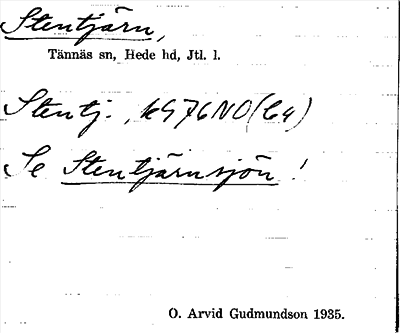 Stentjärn,
Tännäs sn, Hede hd, Jtl. l.
Stentj. , k976NO(C4)
Se Stentjärnsjön !
O. Arvid Gudmundson 1935.